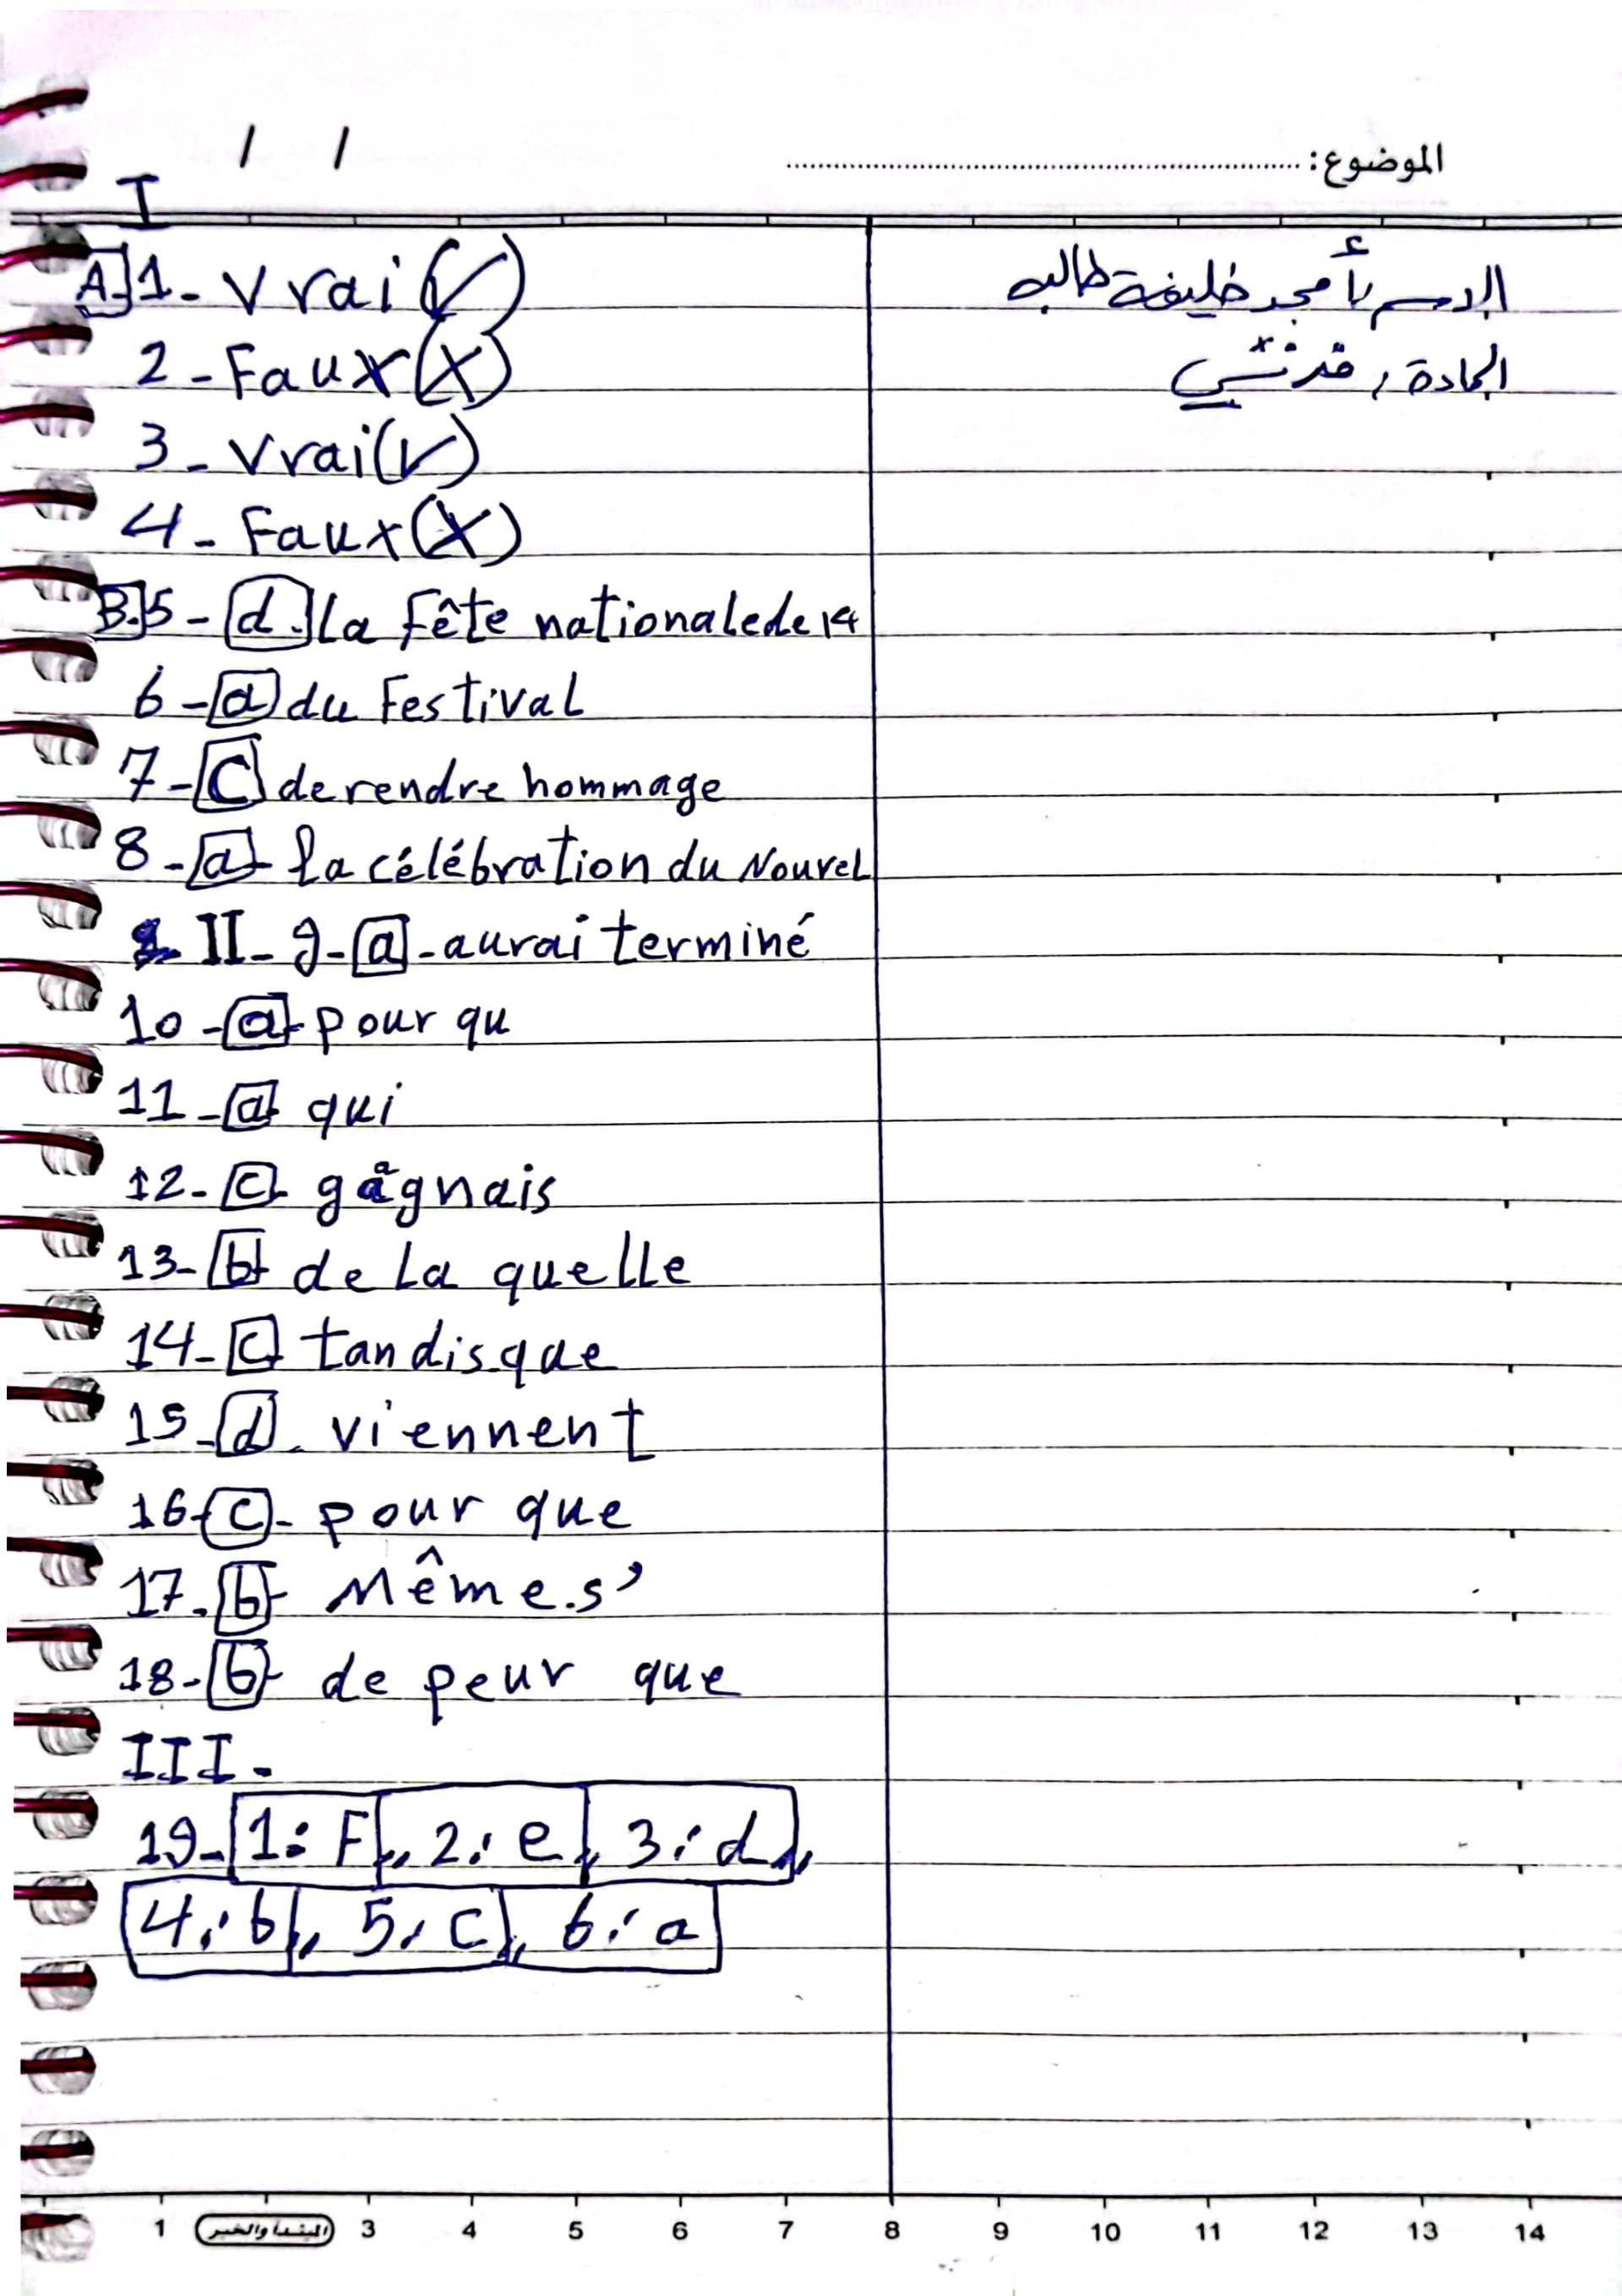 / /
الموضوع:
I
A. 1- Vrai (✓)
الاسم / أمجد خليفة طالب
2 - Faux (X)
المادة / فرنسي
3 - Vrai (✓)
4 - Faux (X)
B. 5 - d. La Fête nationale de 14
6 - a du Festival
7 - C de rendre hommage
8 - a - la célébration du Nouvel
II - 9 - a - aurai terminé
10 - a - pour qu
11 - a qui
12 - c - gagnais
13 - b de la quelle
14 - c tandis que
15 - d. viennent
16 - c - pour que
17 - b - Même s'
18 - b - de peur que
III -
19 - 1: F ,, 2: e , 3: d ,,
4: b ,, 5: c ,, 6: a
1 المبتدأ والخبر 3 4 5 6 7 8 9 10 11 12 13 14